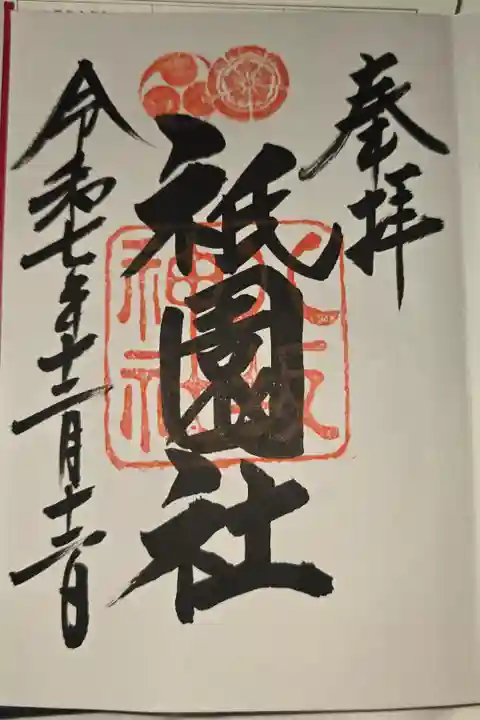 奉拝
祇園社
八坂
神社
令和七年十二月十 日